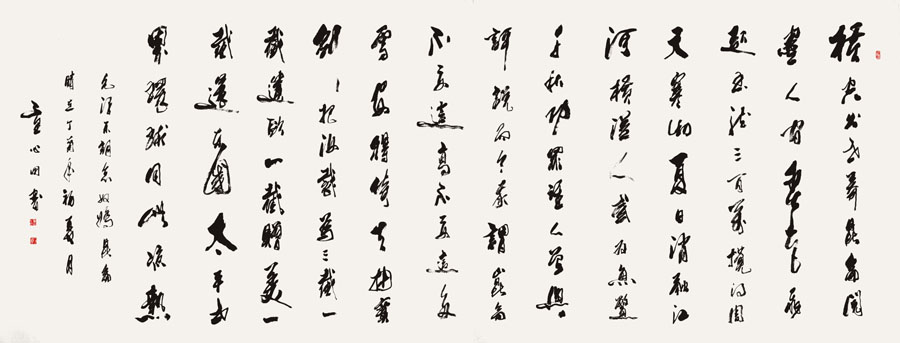 横空出世莽昆侖閲
盡人間春色飛
起玉龍三百萬攪得周
天寒彻夏日消融江
河橫溢人或為魚鱉
千秋功罪誰人曾與
評說而今我謂崑侖
不要這高不要這多
雪安得倚天抽寶
劍把汝裁為三截一
截遺歐一截贈美一
截還東國太平世
界環球同此凉熱
毛澤東詞念奴嬌昆侖
時在丁酉年初夏月
心田書